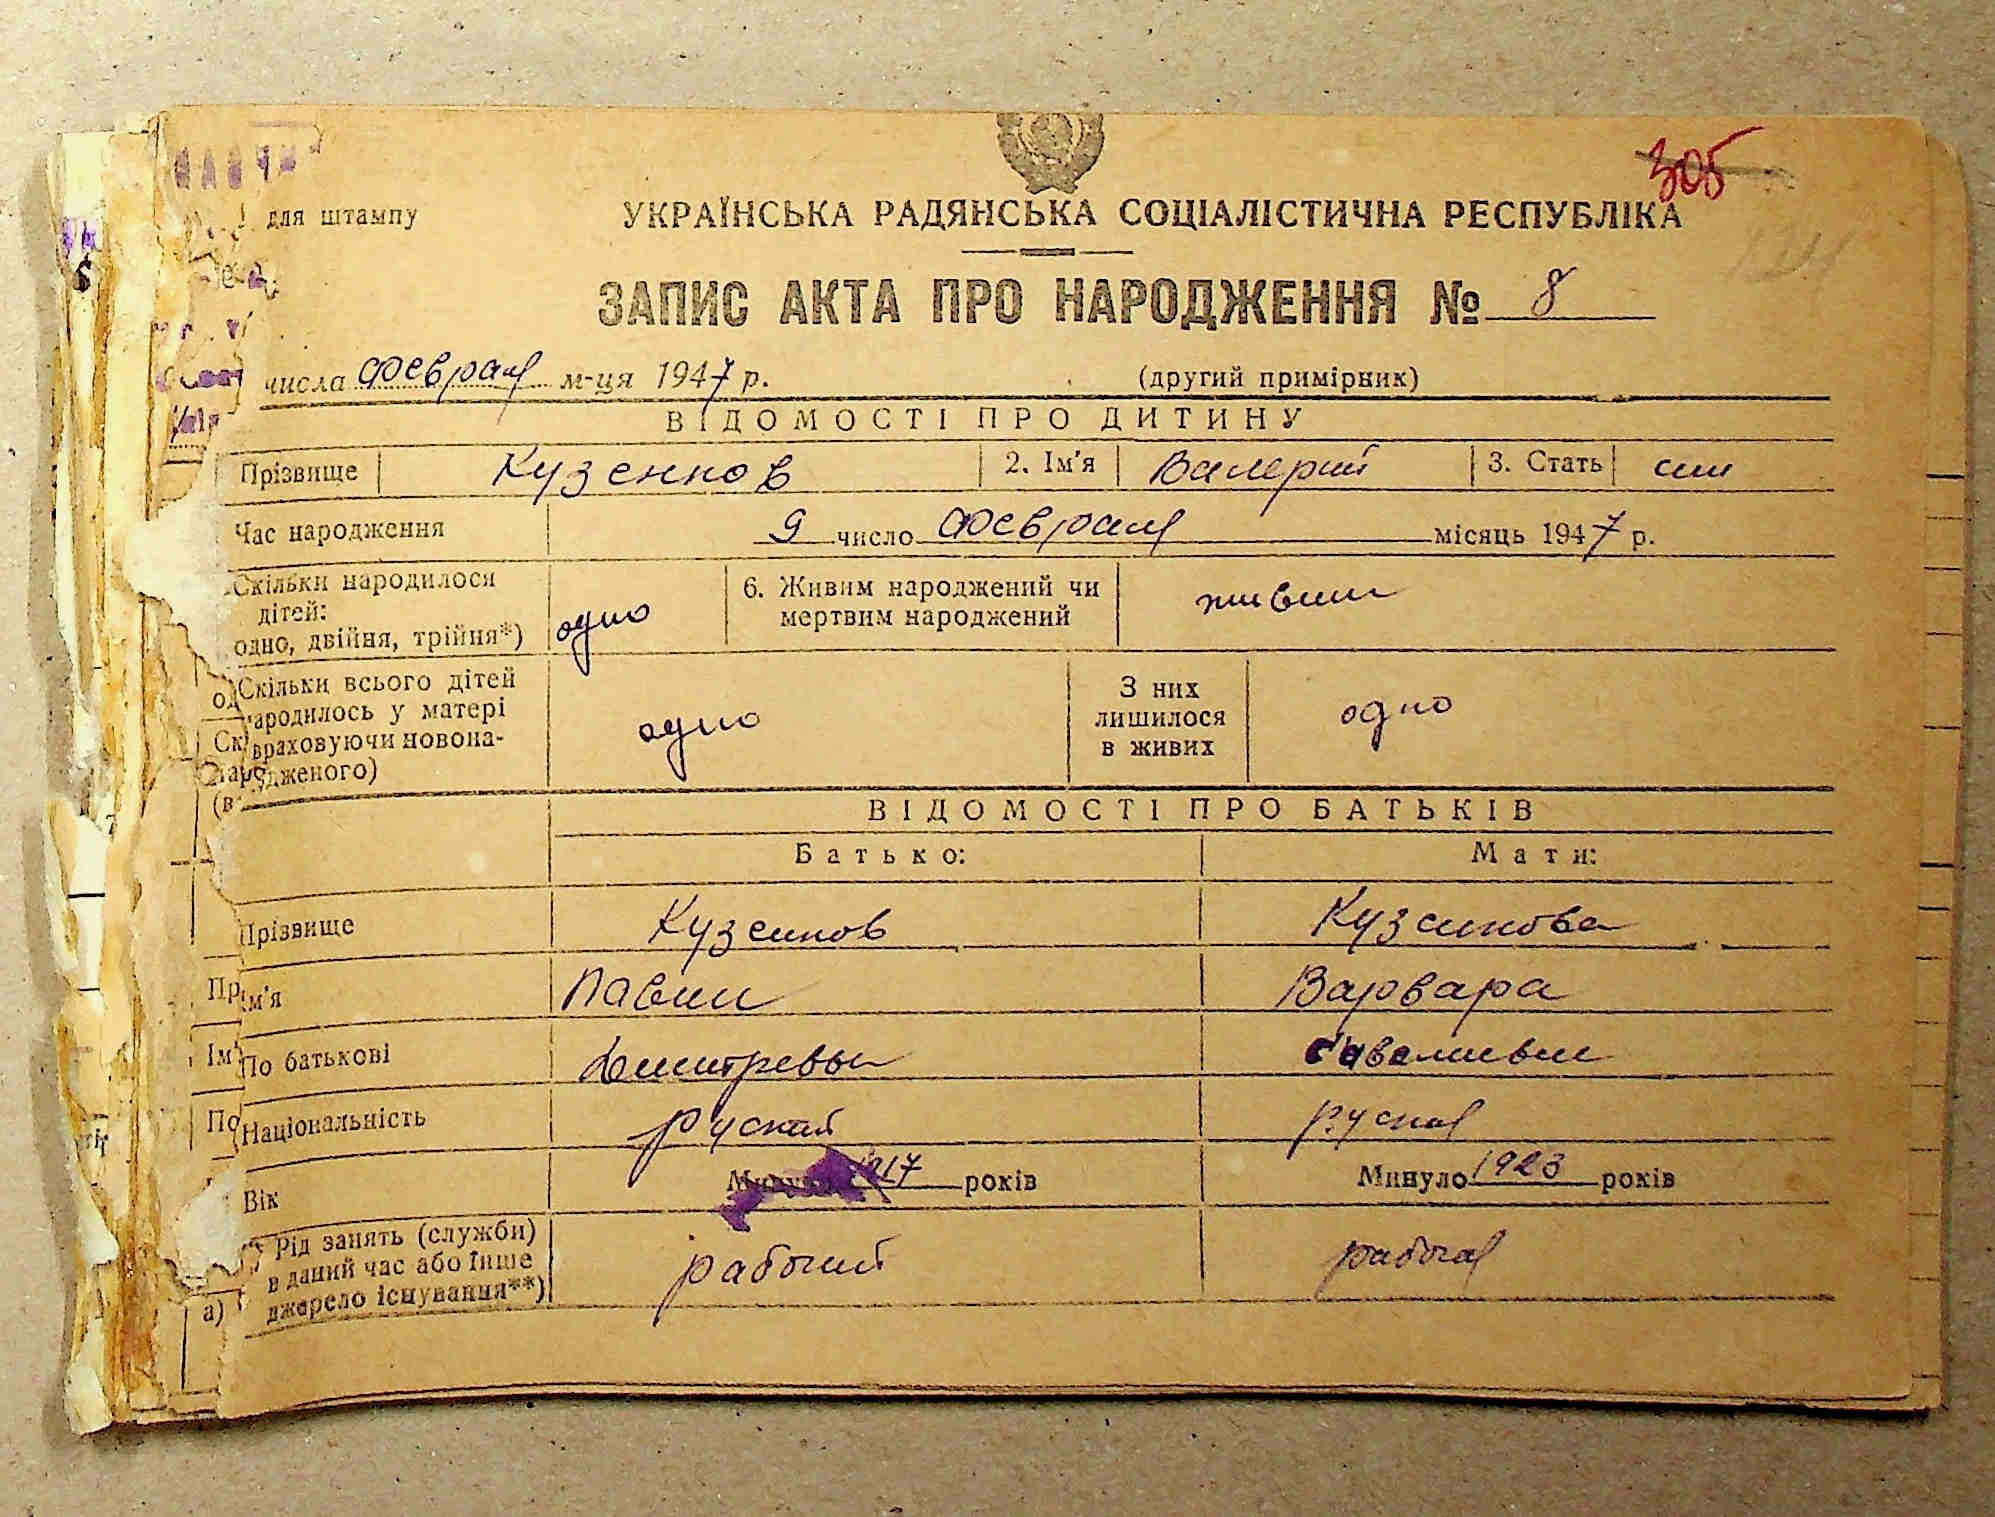 305
для штампу
УКРАЇНСЬКА РАДЯНСЬКА СОЦІАЛІСТИЧНА РЕСПУБЛІКА
ЗАПИС АКТА ПРО НАРОДЖЕННЯ № 8
числа Феврал м-ця 1947 р. (другий примірник)
ВІДОМОСТІ ПРО ДИТИНУ
Прізвище Кузеннов 2. Ім'я Валерий 3. Стать
Час народження 9 число Феврал місяць 1947 р.
Скільки народилося
дітей:
одно, двійня, трійня*) одно
6. Живим народжений чи
мертвим народжений живим
Скільки всього дітей
народилось у матері
враховуючи новона-
дженого) одно
З них
лишилося
в живих одно
ВІДОМОСТІ ПРО БАТЬКІВ
Батько: Мати:
Прізвище Кузеннов Кузеннова
м'я Павел Варвара
По батькові
Національність руский руская
Вік Минуло 1917 років Минуло 1923 років
Рід занять (служби)
в даний час або інше
джерело існування**) рабочий рабочая